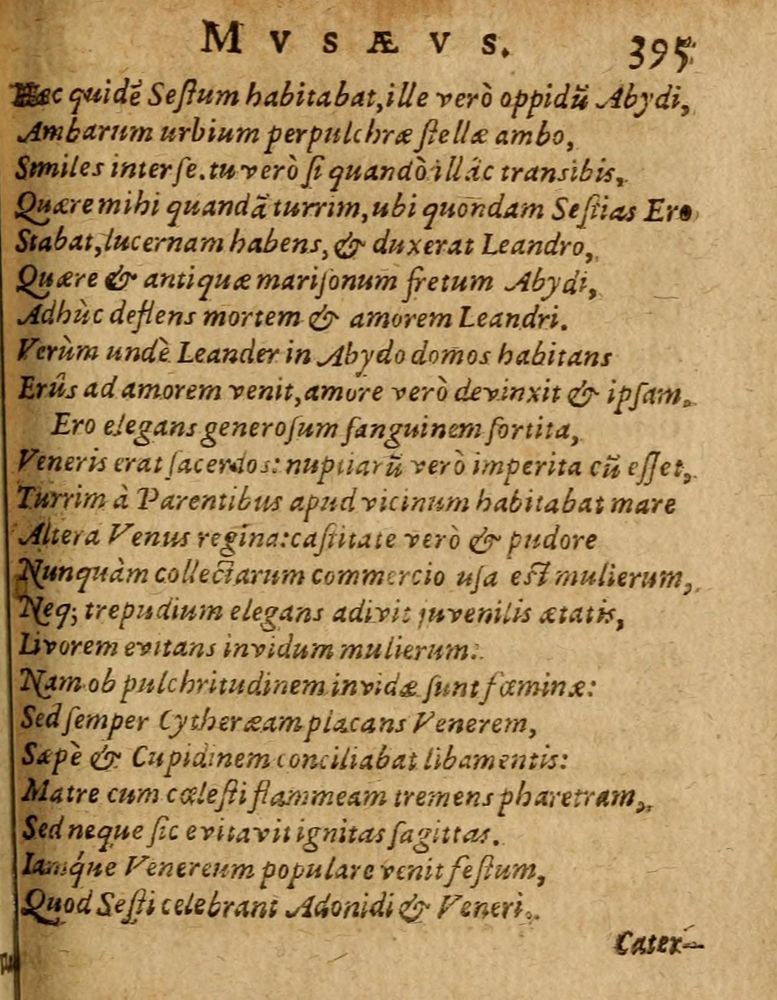 MVSÆVS. 395
Hæc quidē Seſtum habitabat, ille verò oppidū Abydi,
Ambarum urbium perpulchræ ſtellæ ambo,
Similes inter ſe. tu verò ſi quandò illâc transibis,
Quære mihi quandā turrim, ubi quondam Seſtias Ero
Stabat, lucernam habens, & duxerat Leandro,
Quære & antiquæ mariſonum fretum Abydi,
Adhùc deflens mortem & amorem Leandri.
Verùm undè Leander in Abydo domos habitans
Erûs ad amorem venit, amore verò devinxit & ipſam.
Ero elegans generoſum ſanguinem ſortita,
Veneris erat ſacerdos: nuptiarū verò imperita cū eſſet,
Turrim à Parentibus apud vicinum habitabat mare
Altera Venus regina: caſtitate verò & pudore
Nunquàm collectarum commercio uſa eſt mulierum,
Neq; trepudium elegans adivit juvenilis ætatis,
Livorem evitans invidum mulierum:
Nam ob pulchritudinem invidæ ſunt fœminæ:
Sed ſemper Cytheræam placans Venerem,
Sæpè & Cupidinem conciliabat libamentis:
Matre cum cœleſti flammeam tremens pharetram,
Sed neque ſic evitavit ignitas ſagittas.
Iamq́ue Venereum populare venit feſtum,
Quod Seſti celebrant Adonidi & Veneri.
Cater-